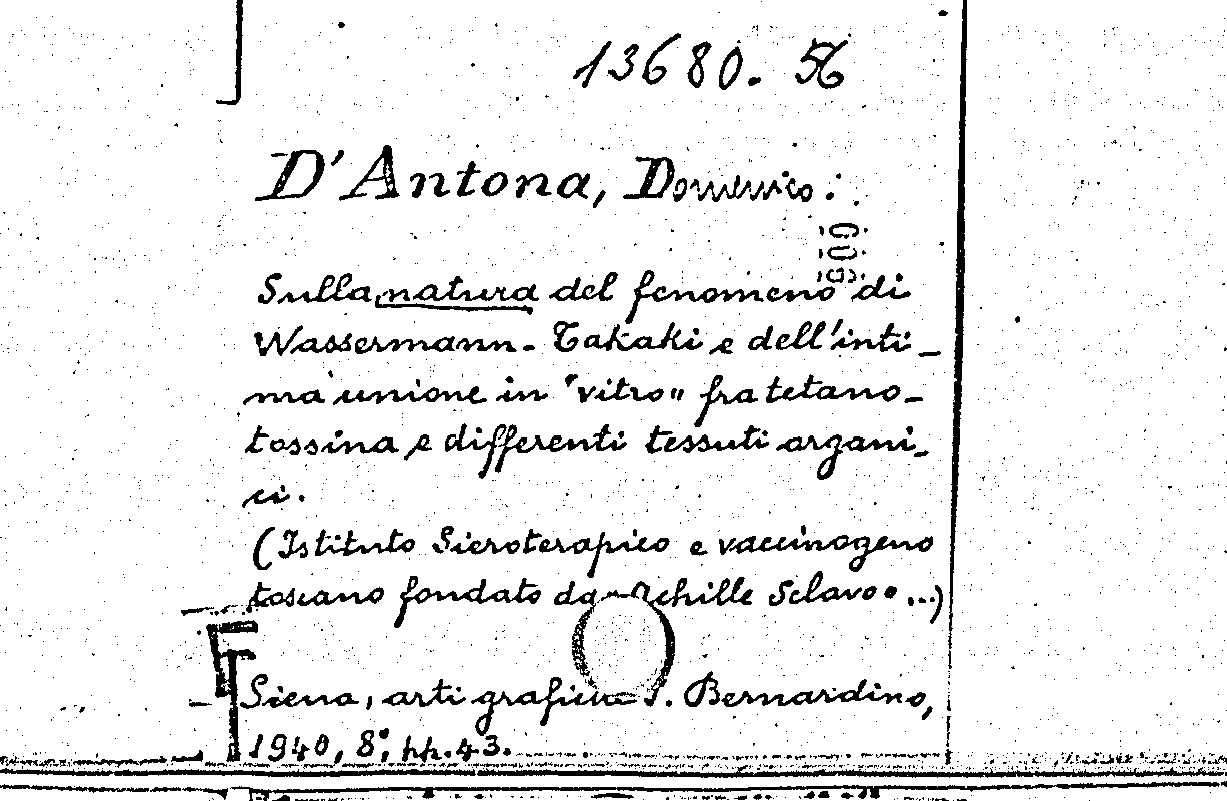 13680. 56
D'Antona, Domenico:
Sulla natura del fenomeno di
Wassermann-Takaki e dell'inti-
ma unione in "vitro" fra tetano-
tossina e differenti tessuti organi-
ci.
(Istituto Sieroterapico e vaccinogeno
toscano fondato da Achille Sclavo ...)
Siena, arti grafiche S. Bernardino,
1940, 8°, pp. 43.